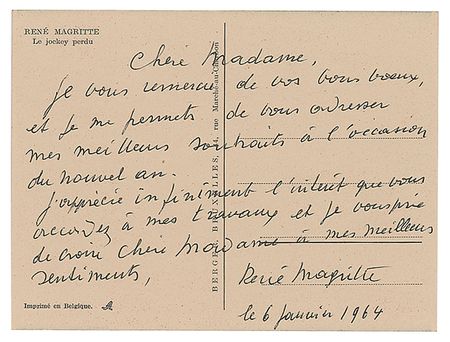 RENÉ MAGRITTE
Le jockey perdu
Chère Madame,
Je vous remercie de vos bons voeux,
et je me permets de vous adresser
mes meilleurs souhaits à l'occasion
du nouvel an.
J'apprécie infiniment l'intérêt que vous
accordez à mes travaux et je vous prie
de croire Chère Madame à mes meilleurs
sentiments,
René Magritte
le 6 janvier 1964
Imprimé en Belgique.
BRUXELLES, 4, rue Marché-au-Charbon